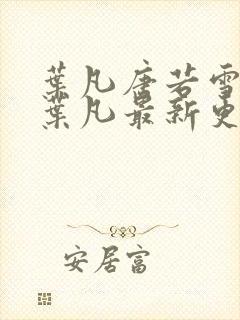 葉凡唐若雪
葉凡最新更
安居富